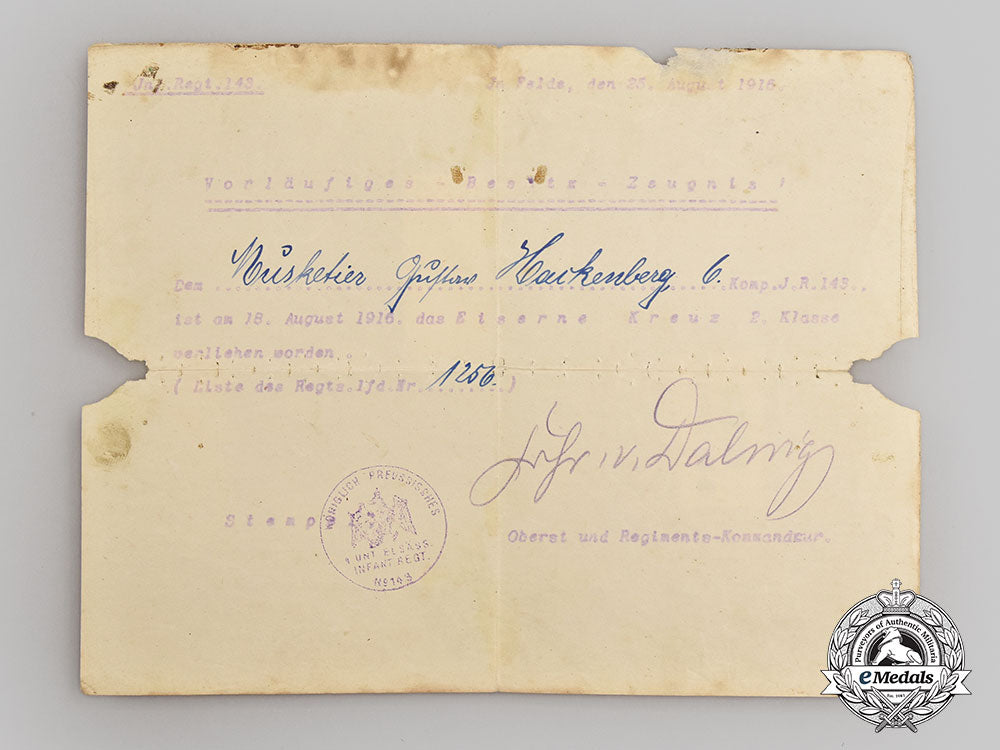 Inf.Regt.143.
Im Felde, den 25. August 1916.
Vorläufiges - Besitz - Zeugnis !
Dem Musketier Gustav Hackenberg 6. Komp.J.R.143..
ist am 18. August 1916. das Eiserne Kreuz 2. Klasse
verliehen worden.
( Liste des Regts.lfd.Nr. 1256. )
Frhr. v. Dalwig
Stempel
Oberst und Regiments-Kommandeur.
KÖNIGLICH PREUSSISCHES
4 UNT. ELSÄSS.
INFANT. REGT.
No 143
Purveyors of Authentic Militaria
eMedals